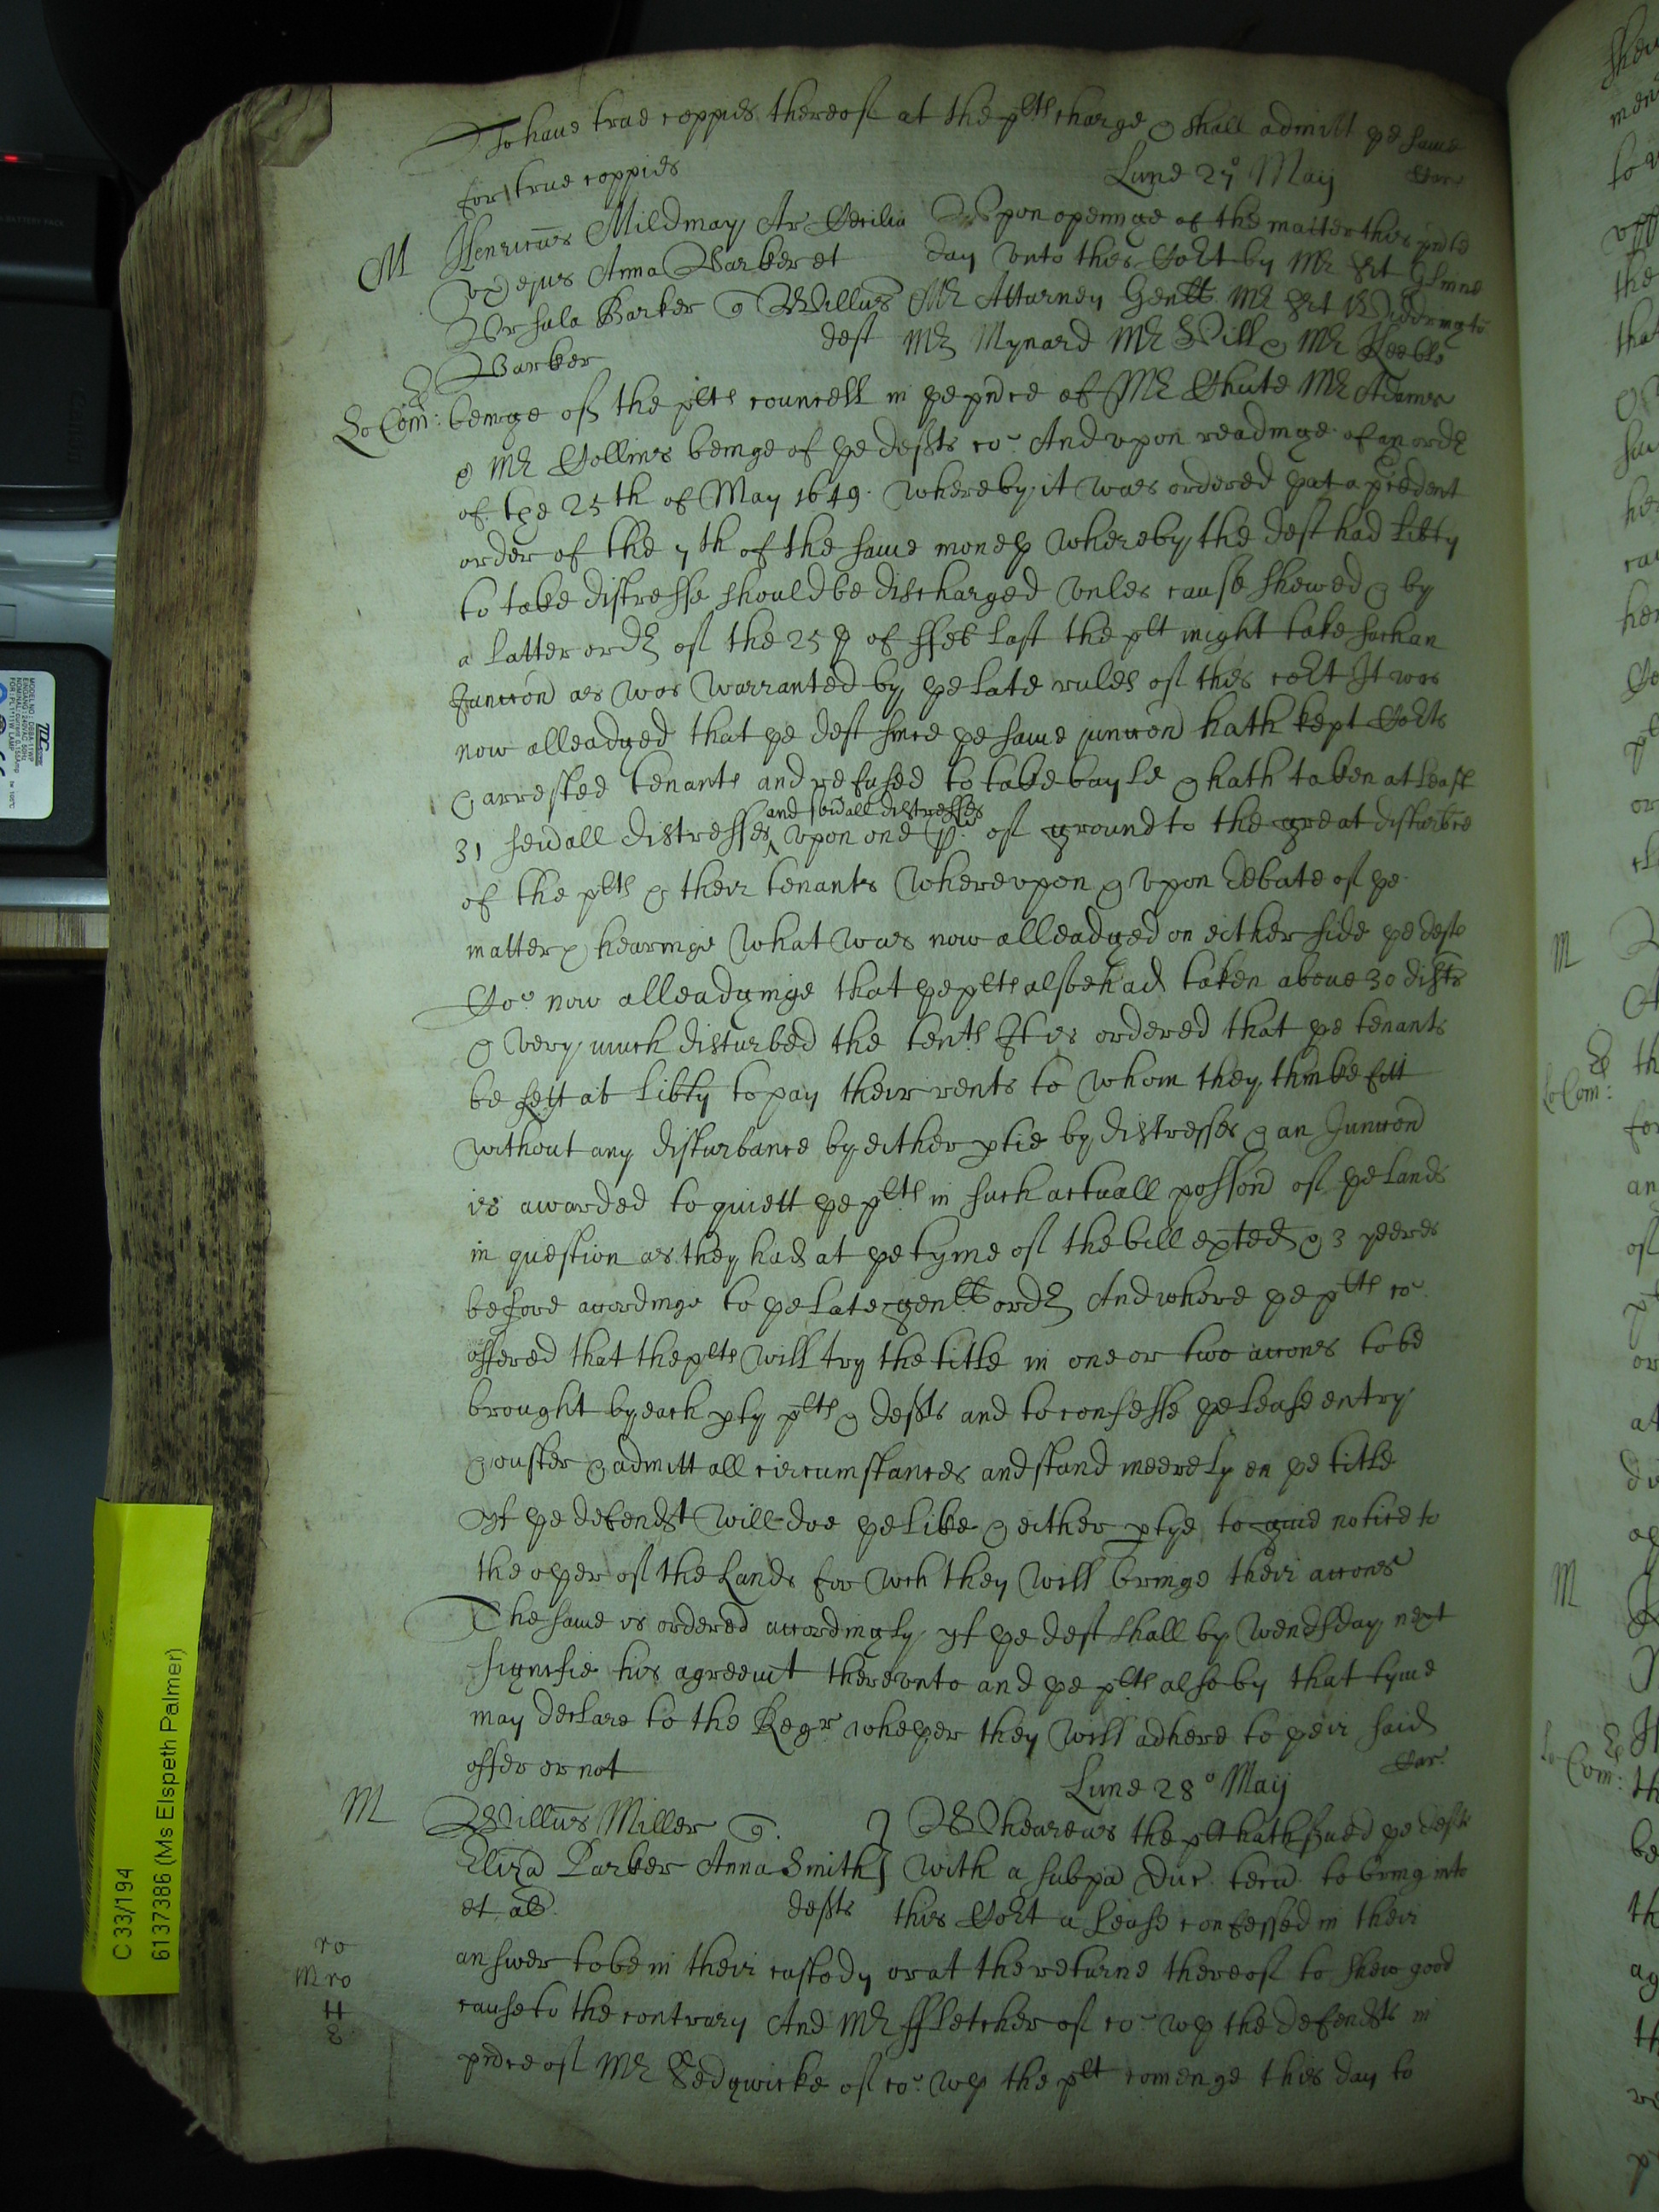 To haue true coppies thereof at the plts charge & shall admitt ye same
for true coppies
Lune 27 Maij
M Henricus Mildmay Ar Cecilia
ux ejus Anna Barker et
Ursula Barker & Willus
Barker deft
Vpon openinge of the matter this pnte
day vnto this Cort by Mr Srt Glinne
Mr Atturney Genll Mr Srt Widdringto
Mr Mynard Mr Hill & Mr Keeble
Lo Com: beinge of the plts councell in ye pnce of Mr Chute Mr Adams
& Mr Collins beinge of ye defts co: And vpon readinge of an ordr
of the 25th of May 1649. whereby it was ordered yat a pcedent
order of the 7th of the same moneth whereby the deft had libty
to take distresse should be discharged vnles cause shewed & by
a latter ordr of the 25th of ffeb last the plt might take such an
Juncon as was warranted by ye late rules of this cort It was
now alleadged that ye deft since ye same juncon hath kept Corts
& arrested tenants and refused to take bayle & hath taken at least
31 seuall distresses and seuall distresses vpon one p: of ground to the great disturbce
of the plts & their tenants Wherevpon & vpon debate of ye
matter & hearinge what was now alleadged on either side ye defts
Co: now alleadginge that ye plts alsoe had taken aboue 30 distrs
& very much disturbed the tents It is ordered that ye tenants
be sett at libty to pay their rents to whom they thinke fitt
without any disturbance by either ptie by distresses & an Juncon
is awarded to quiett ye plts in such actuall possion of ye lands
in question as they had at ye tyme of the bill exted & 3 yeeres
before accordinge to ye late genll ordr And where ye plts co:
offered that the plts will try the title in one or two accons to be
brought by each pty plts & defts and to confesse ye lease entry
& ouster & admitt all circumstances and stand meerely on ye title
yf ye defendt will doe ye like & either ptye to giue notice to
the oyer of the Lands for wch they will bringe their accons
The same is ordered accordingly yf ye deft shall by Wendsday next
signifie his agreemt therevnto and ye plts also by that tyme
may declare to the Regr wheyer they will adhere to yeir said
offer or not
Lune 28º Maij
M Willus Miller &
Eliza Parker Anna Smith
et al defts
Wheareas the plt hath sued ye defts
with a subpa Duc. tecu. to bring into
this Cort a lease confessed in their
answer to be in their custody or at the returne thereof to shew good
cause to the contrary And Mr ffletcher of co: wth the defendts in
pnce of Mr Sedgwicke of co: wth the plt comenge this day to
ro
Mro
H
M
Lo Com:
M
M
Lo Com:
C 33/194
6137386 (Ms Elspeth Palmer)